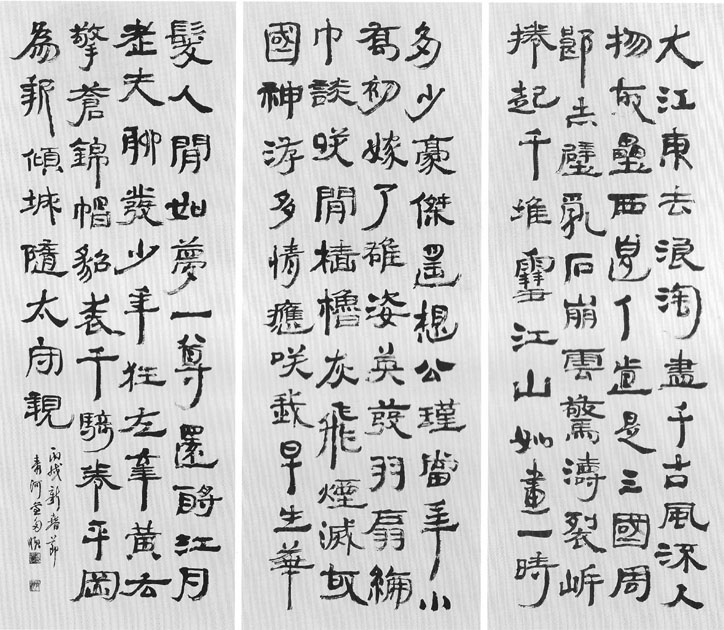 大江東去浪淘盡千古風流人
物故壘西邊人道是三國周
郎赤壁乱石崩雲驚濤裂岍
捲起千堆雪江山如畫一時
多少豪傑遥想公瑾當年小
喬初嫁了雄姿英發羽扇綸
巾談咲間檣櫓灰飛煙滅故
國神游多情應咲我早生華
髮人間如夢一尊還酹江月
老夫聊發少年狂左牽黄右
擎蒼錦帽貂裘千騎卷平岡
為報傾城隨太守親
丙戌新春節